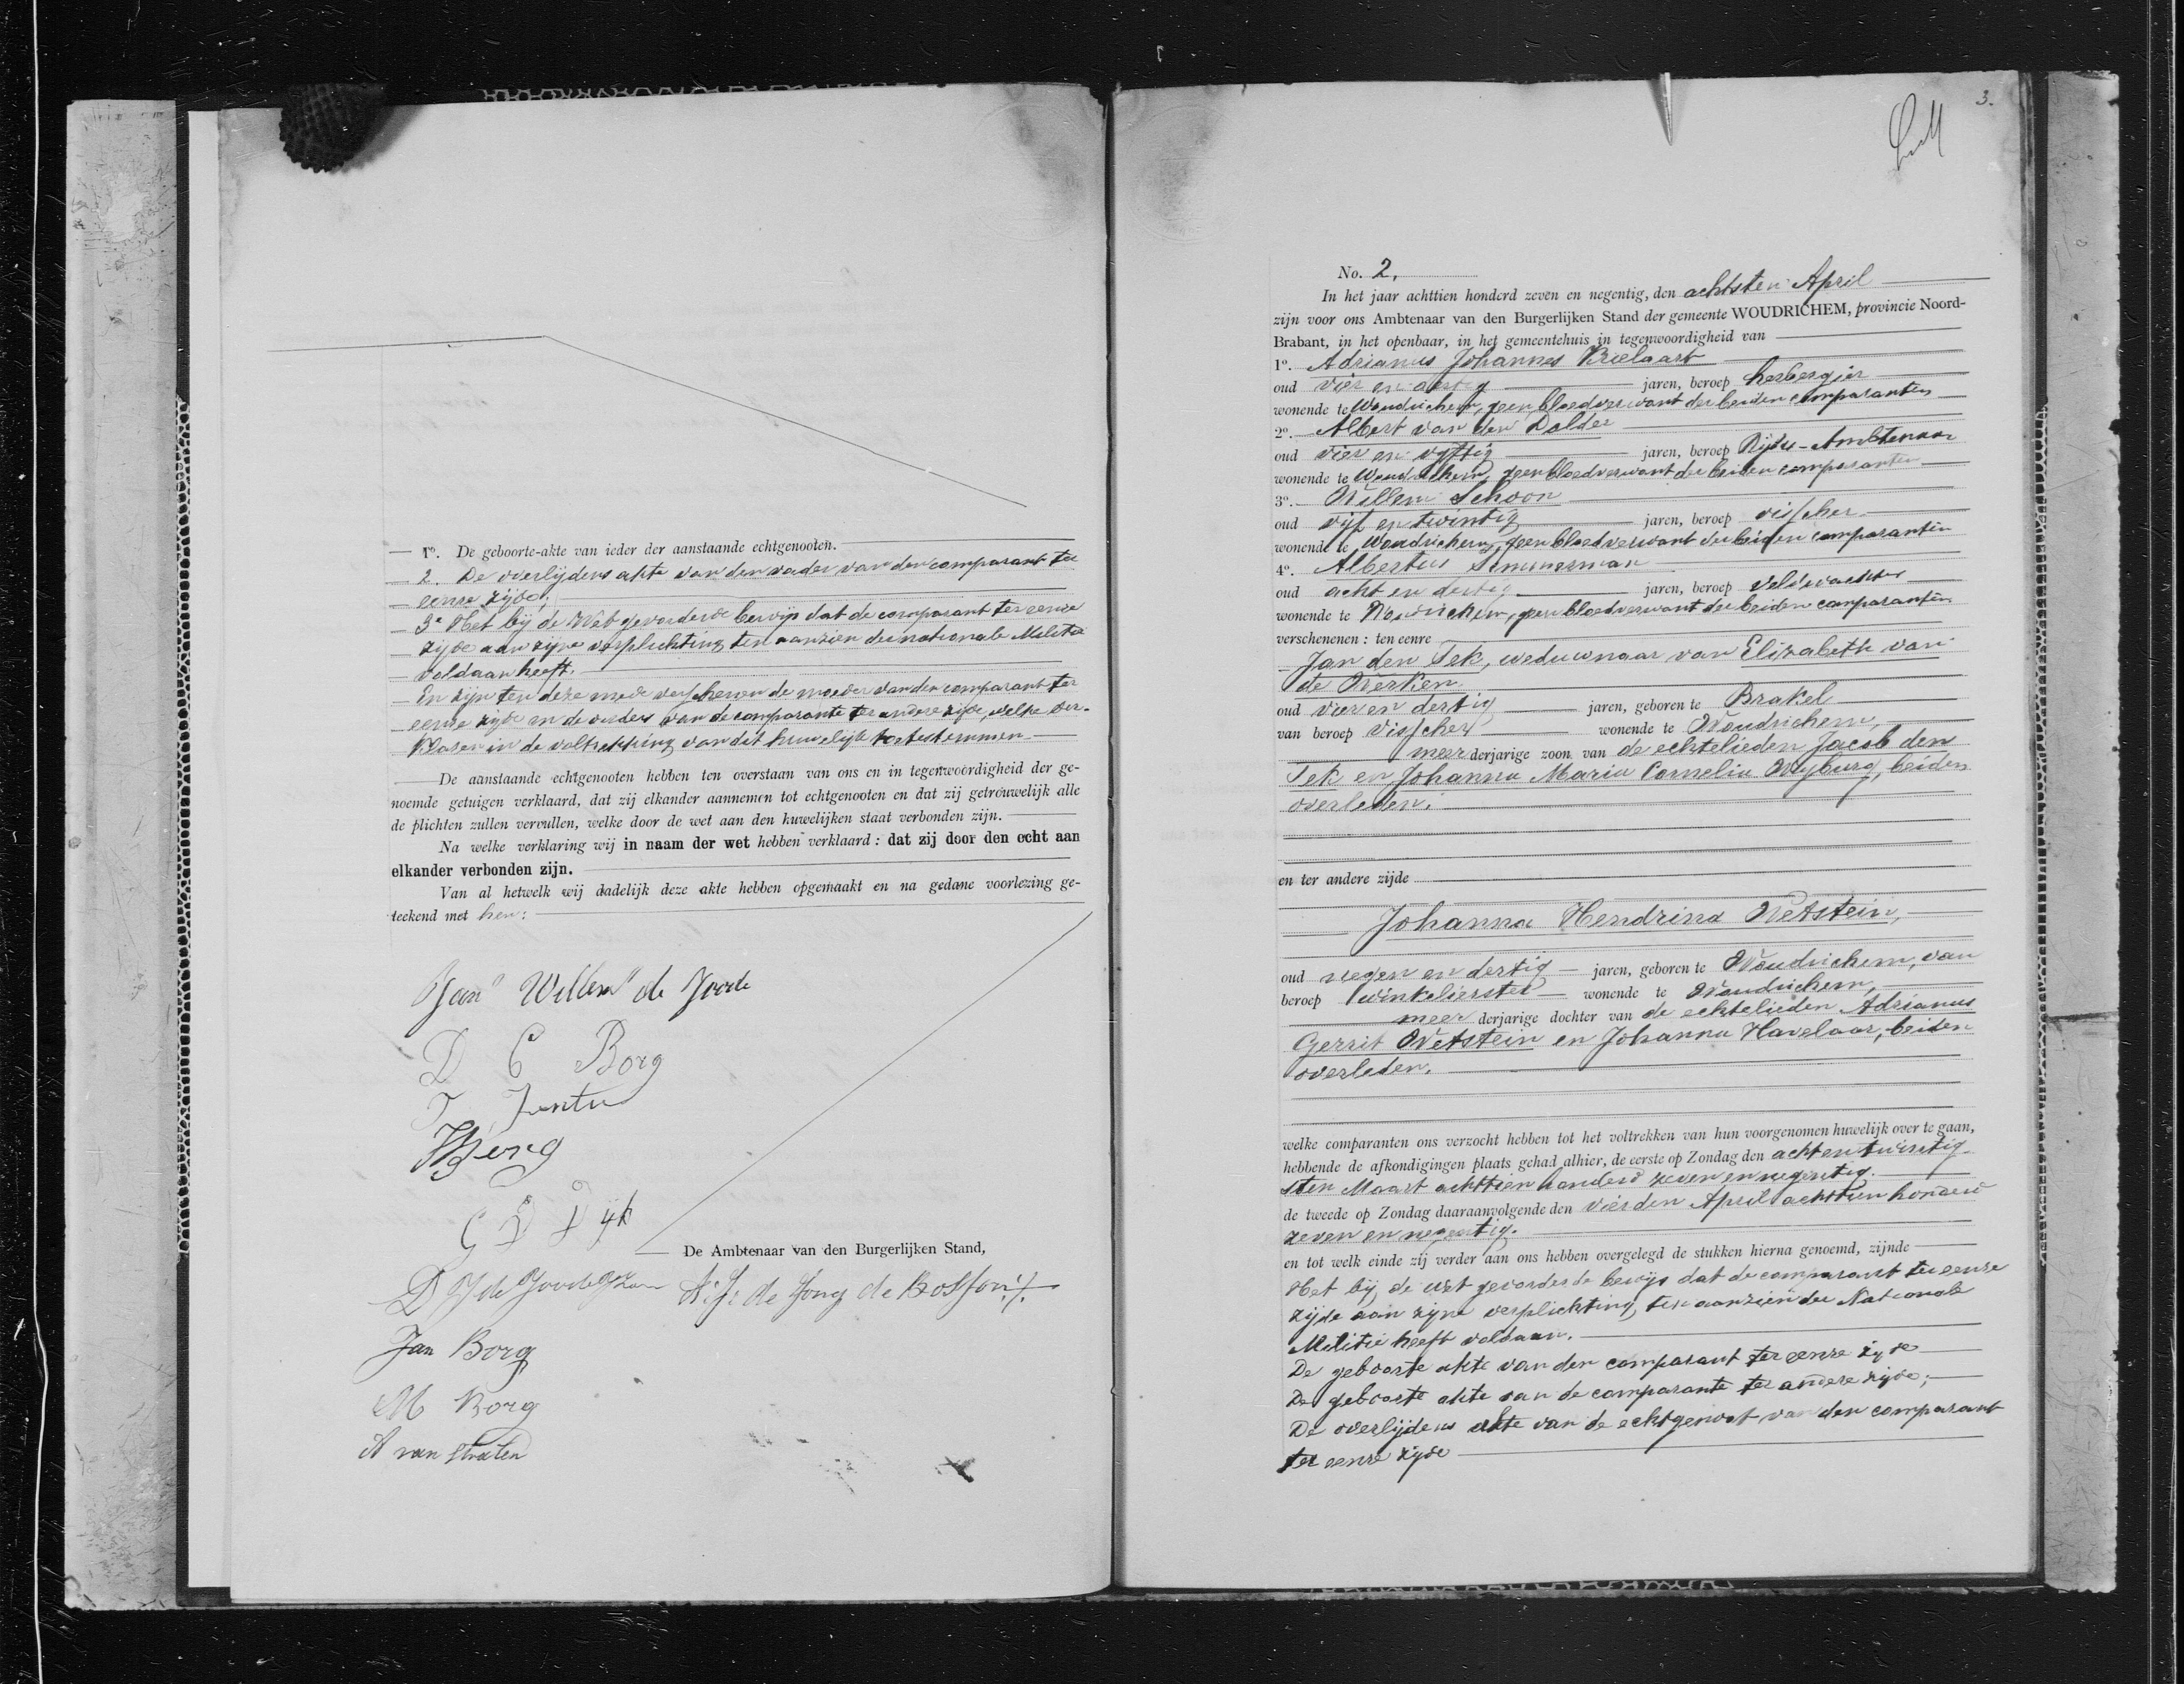 1o. De geboorte-akte van ieder der aanstaande echtgenooten.
2. De overlijdens akte van den vader van den comparant ter
eenre zijde;
3e Het bij de Wet gevorderde bewijs dat de comparant ter eenre
zijde aan zijne verplichting ten aanzien der nationale Militie
voldaan heeft.
En zijn ten deze mede verschenen de moeder van den comparant ter
eenre zijde en de ouders van de comparante ter andere zijde, welke ver-
klaren in de voltrekking van dit huwelijk toetestemmen.
De aanstaande echtgenooten hebben ten overstaan van ons en in tegenwoordigheid der ge-
noemde getuigen verklaard, dat zij elkander aannemen tot echtgenooten en dat zij getrouwelijk alle
de plichten zullen vervullen, welke door de wet aan den huwelijken staat verbonden zijn.
Na welke verklaring wij in naam der wet hebben verklaard: dat zij door den echt aan
elkander verbonden zijn.
Van al hetwelk wij dadelijk deze akte hebben opgemaakt en na gedane voorlezing ge-
teekend met hen:
Jan Willem de Joode
D C Borg
HBorg
De Ambtenaar van den Burgerlijken Stand,
D J de Joode
de Jong de
Jan Borg
M Borg
A van Straten
3.
No. 2.
In het jaar achttien honderd zeven en negentig, den achtsten April
zijn voor ons Ambtenaar van den Burgerlijken Stand der gemeente WOUDRICHEM, provincie Noord-
Brabant, in het openbaar, in het gemeentehuis in tegenwoordigheid van
1o. Adrianus Johannes Brelaart
oud vier en dertig jaren, beroep herbergier
wonende te Woudrichem, geen bloedverwant der beiden comparanten
2o. Albert van den Dolder
oud vier en vyftig jaren, beroep Rijks-Ambtenaar
wonende te Woudrichem, geen bloedverwant der beiden comparanten
3o. Willem Schoon
oud vijf en twintig jaren, beroep visscher
wonende te Woudrichem, geen bloedverwant der beiden comparanten
4o. Albertus Timmerman
oud acht en dertig jaren, beroep veldwachter
wonende te Woudrichem, geen bloedverwant der beiden comparanten
verschenenen: ten eenre
Jan den Tek, weduwnaar van Elizabeth van
de Werken
oud vier en dertig jaren, geboren te Brakel
van beroep visscher wonende te Woudrichem,
meerderjarige zoon van de echtelieden Jacob den
Tek en Johanna Maria Cornelia Wyburg, beiden
overleden.
en ter andere zijde
Johanna Hendrina Wetstein,
oud negen en dertig jaren, geboren te Woudrichem, van
beroep winkelierster wonende te Woudrichem,
meer derjarige dochter van de echtelieden Adrianus
Gerrit Wetstein en Johanna Havelaar, beiden
overleden.
welke comparanten ons verzocht hebben tot het voltrekken van hun voorgenomen huwelijk over te gaan,
hebbende de afkondigingen plaats gehad alhier, de eerste op Zondag den acht en twintig-
sten Maart achttien honderd zeven en negentig.
de tweede op Zondag daaraanvolgende den vierden April achttien honderd
zeven en negentig.
en tot welk einde zij verder aan ons hebben overgelegd de stukken hierna genoemd, zijnde
Het bij de wet gevorderde bewijs dat de comparant ter eenre
zijde aan zijne verplichting ten aanzien der Nationale
Militie heeft voldaan.
De geboorte akte van den comparant ter eenre zijde
De geboorte akte van de comparante ter andere zijde;
De overlijdens akte van de echtgenoot van den comparant
ter eenre zijde